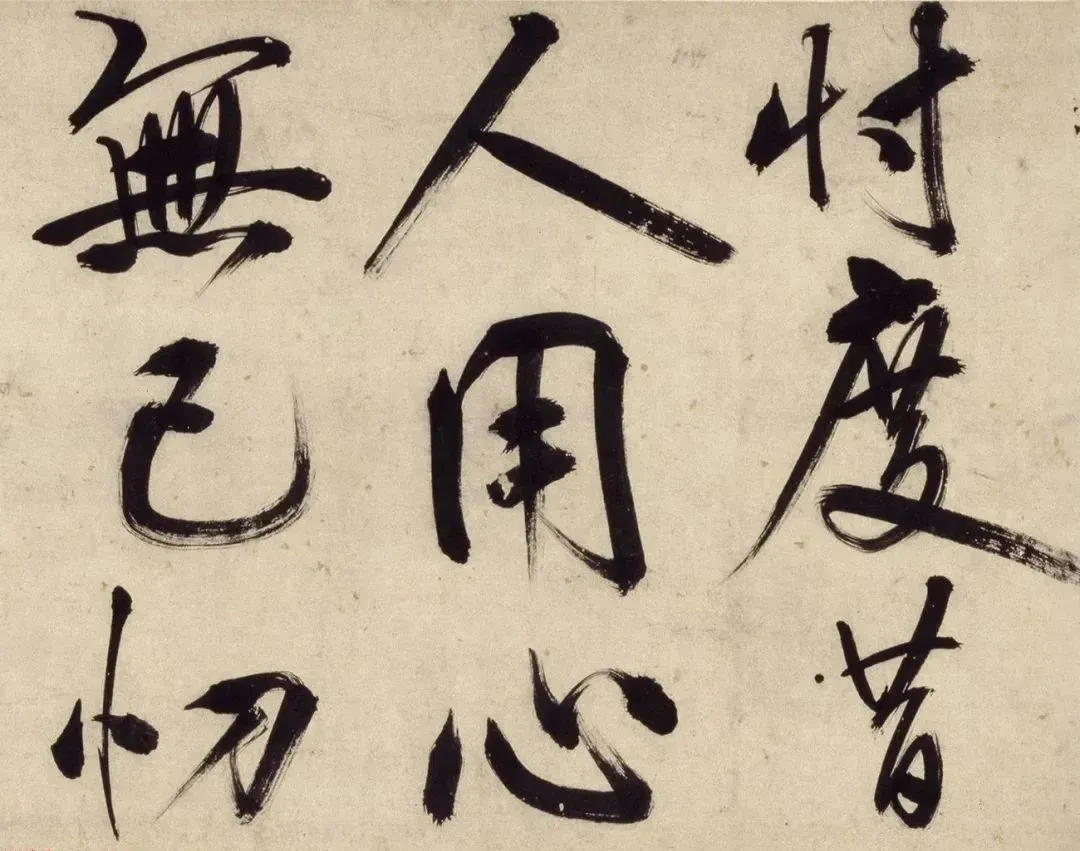 忖度昔
人用心
無已忉